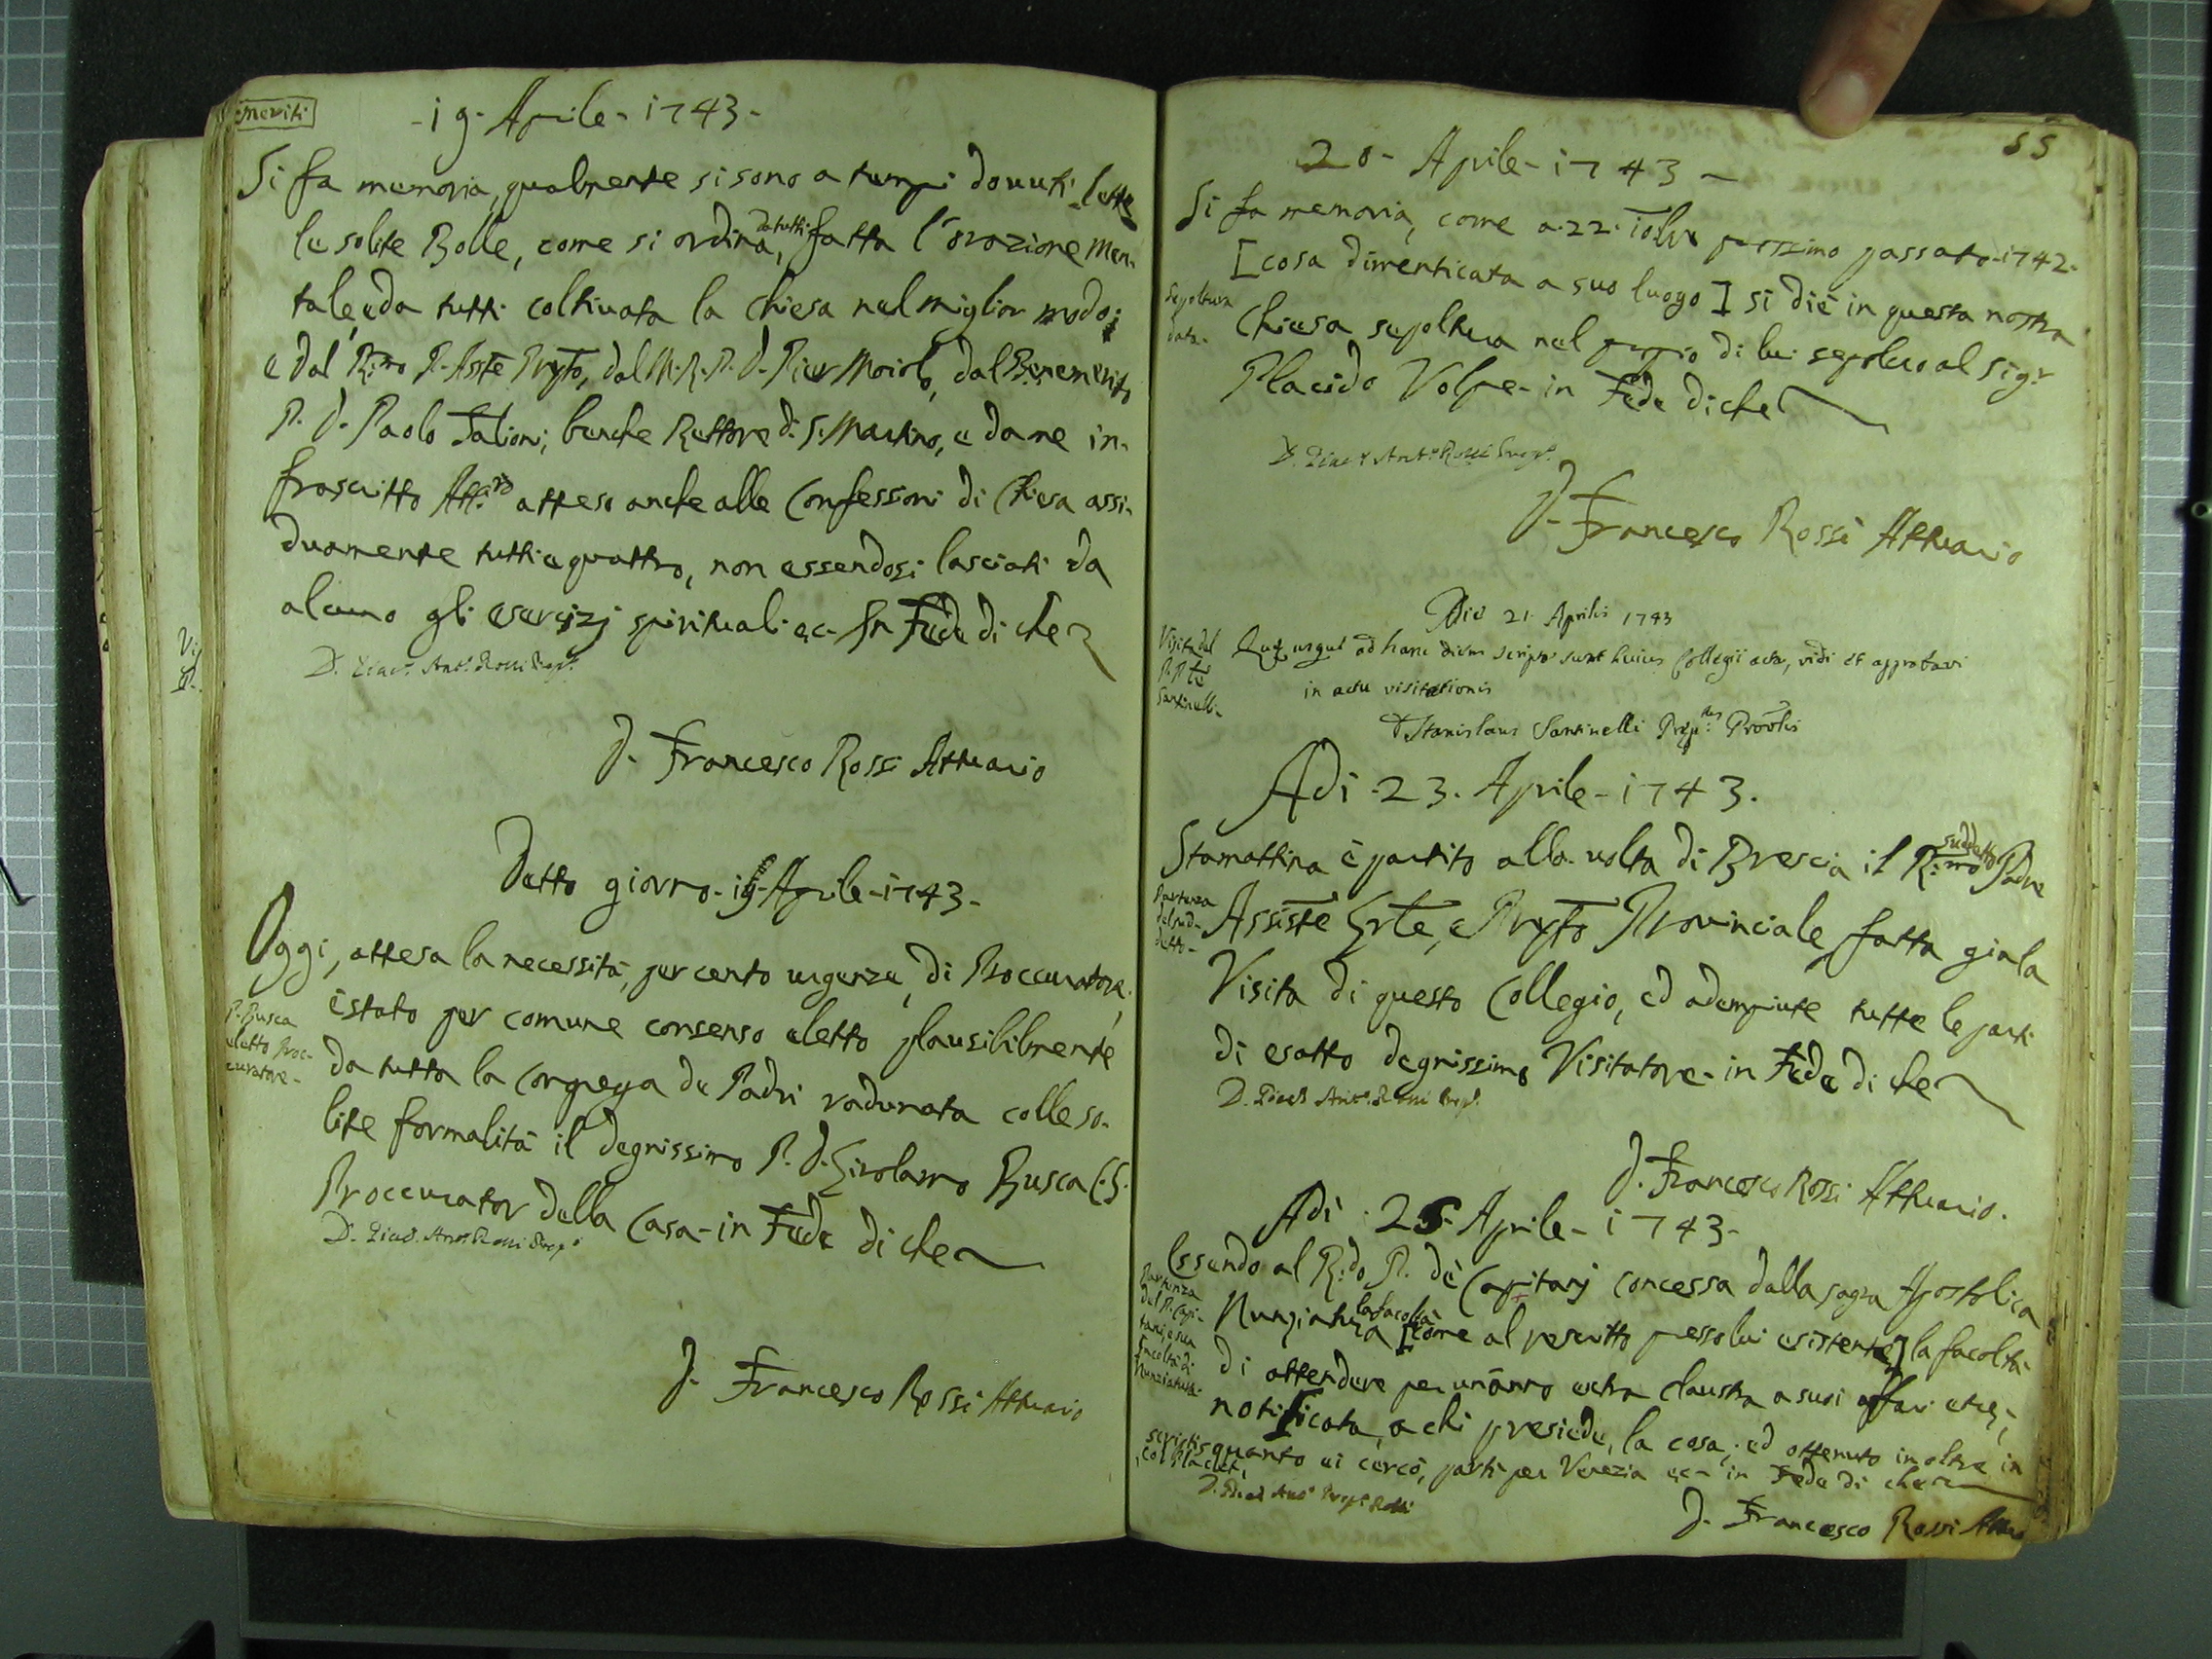 meriti
- 19 - Aprile - 1743 -
Si fa memoria, qualmente si sono a tempi douuti lette
le solite Bolle, come si ordina, da tutti fatta l'orazione men-
tale, e da tutti coltiuata la Chiesa nel miglior modo;
e dal R:mo P. Asste Prpto, dal M. R. P. D. Pier Maiolo, dal Benemerito
P. D. Paolo Falioni, benche Rettore di S. Martino, e da me in-
frascritto Att:rio atteso anche alle Confessioni di Chiesa assi-
duamente tutti e quattro, non essendosi lasciati da
alcuno gli esercizj spirituali ec - In Fede di che
D. Ant.o Rossi Prep.o
D. Francesco Rossi Attuario
Detto giorno - 19 - Aprile - 1743 -
Oggi, attesa la necessità, per cento urgenze, di Proccuratore,
è stato per comune consenso eletto plausibilmente
P. Busca
eletto Proc-
curatore -
da tutta la Congrega de Padri radunata colle so-
lite formalità il degnissimo P. D. Girolamo Busca C. S.
Proccurator della Casa - in Fede di che
D. Ant.o Rossi Prep.o
D. Francesco Rossi Attuario
55
20 - Aprile - 1743 -
Si fa memoria, come a 22 passato 1742 -
[cosa dimenticata a suo luogo] si diè in questa nostra
Sepoltura
data -
Chiesa sepoltura nel proprio di lui sepolcro al Sig.r
Placido Volpe - in Fede di che
D. Ant.o Rossi Prep.o
D. Francesco Rossi Attuario
Die 21 Aprilis 1743
Visita del
P. Pte
Santinelli -
Quæ usque ad hanc diem scripta sunt huius Collegii acta, vidi et approbavi
in actu visitationis
D Stanislaus Santinelli Præp.tus Provlis
Adi - 23 - Aprile - 1743 -
Stamattina è partito alla uolta di Brescia il R:mo suddetto Padre
Partenza
del sud-
detto -
Assiste Grle, e Prpto Prouinciale, fatta gia la
Visita di questo Collegio, ed adempiute tutte le parti
di esatto degnissimo Visitatore - in Fede di che
D. Ant.o Rossi Prep.o
D. Francesco Rossi Attuario -
Adi - 25 - Aprile - 1743 -
Essendo al R:do P. de Capitanj concessa dalla sagra Apostolica
Partenza
del P. Capi-
tanj, e sua
facoltà di
Nunziatura -
Nunziatura la facoltà [come al rescritto presso lui esistente] la facoltà
di attendere per un anno extra claustra a suoi affari
notificata, a chi presiede, la cosa; ed ottenuto inoltre in
scriptis quanto ei cercò, partì per Venezia ec - in Fede di che
col Placet,
D. Ant.o Prep.o Rossi
D. Francesco Rossi